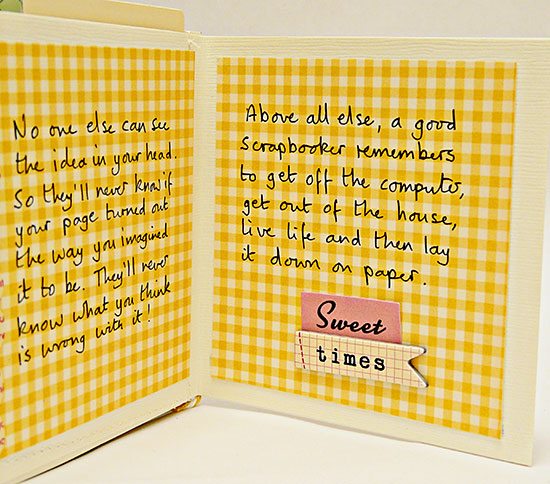 No one else can see
the idea in your head.
So they'll never know if
your page turned out
the way you imagined
it to be. They'll never
know what you think
is wrong with it!
Above all else, a good
scrapbooker remembers
to get off the computer,
get out of the house,
live life and then lay
it down on paper.
Sweet
times